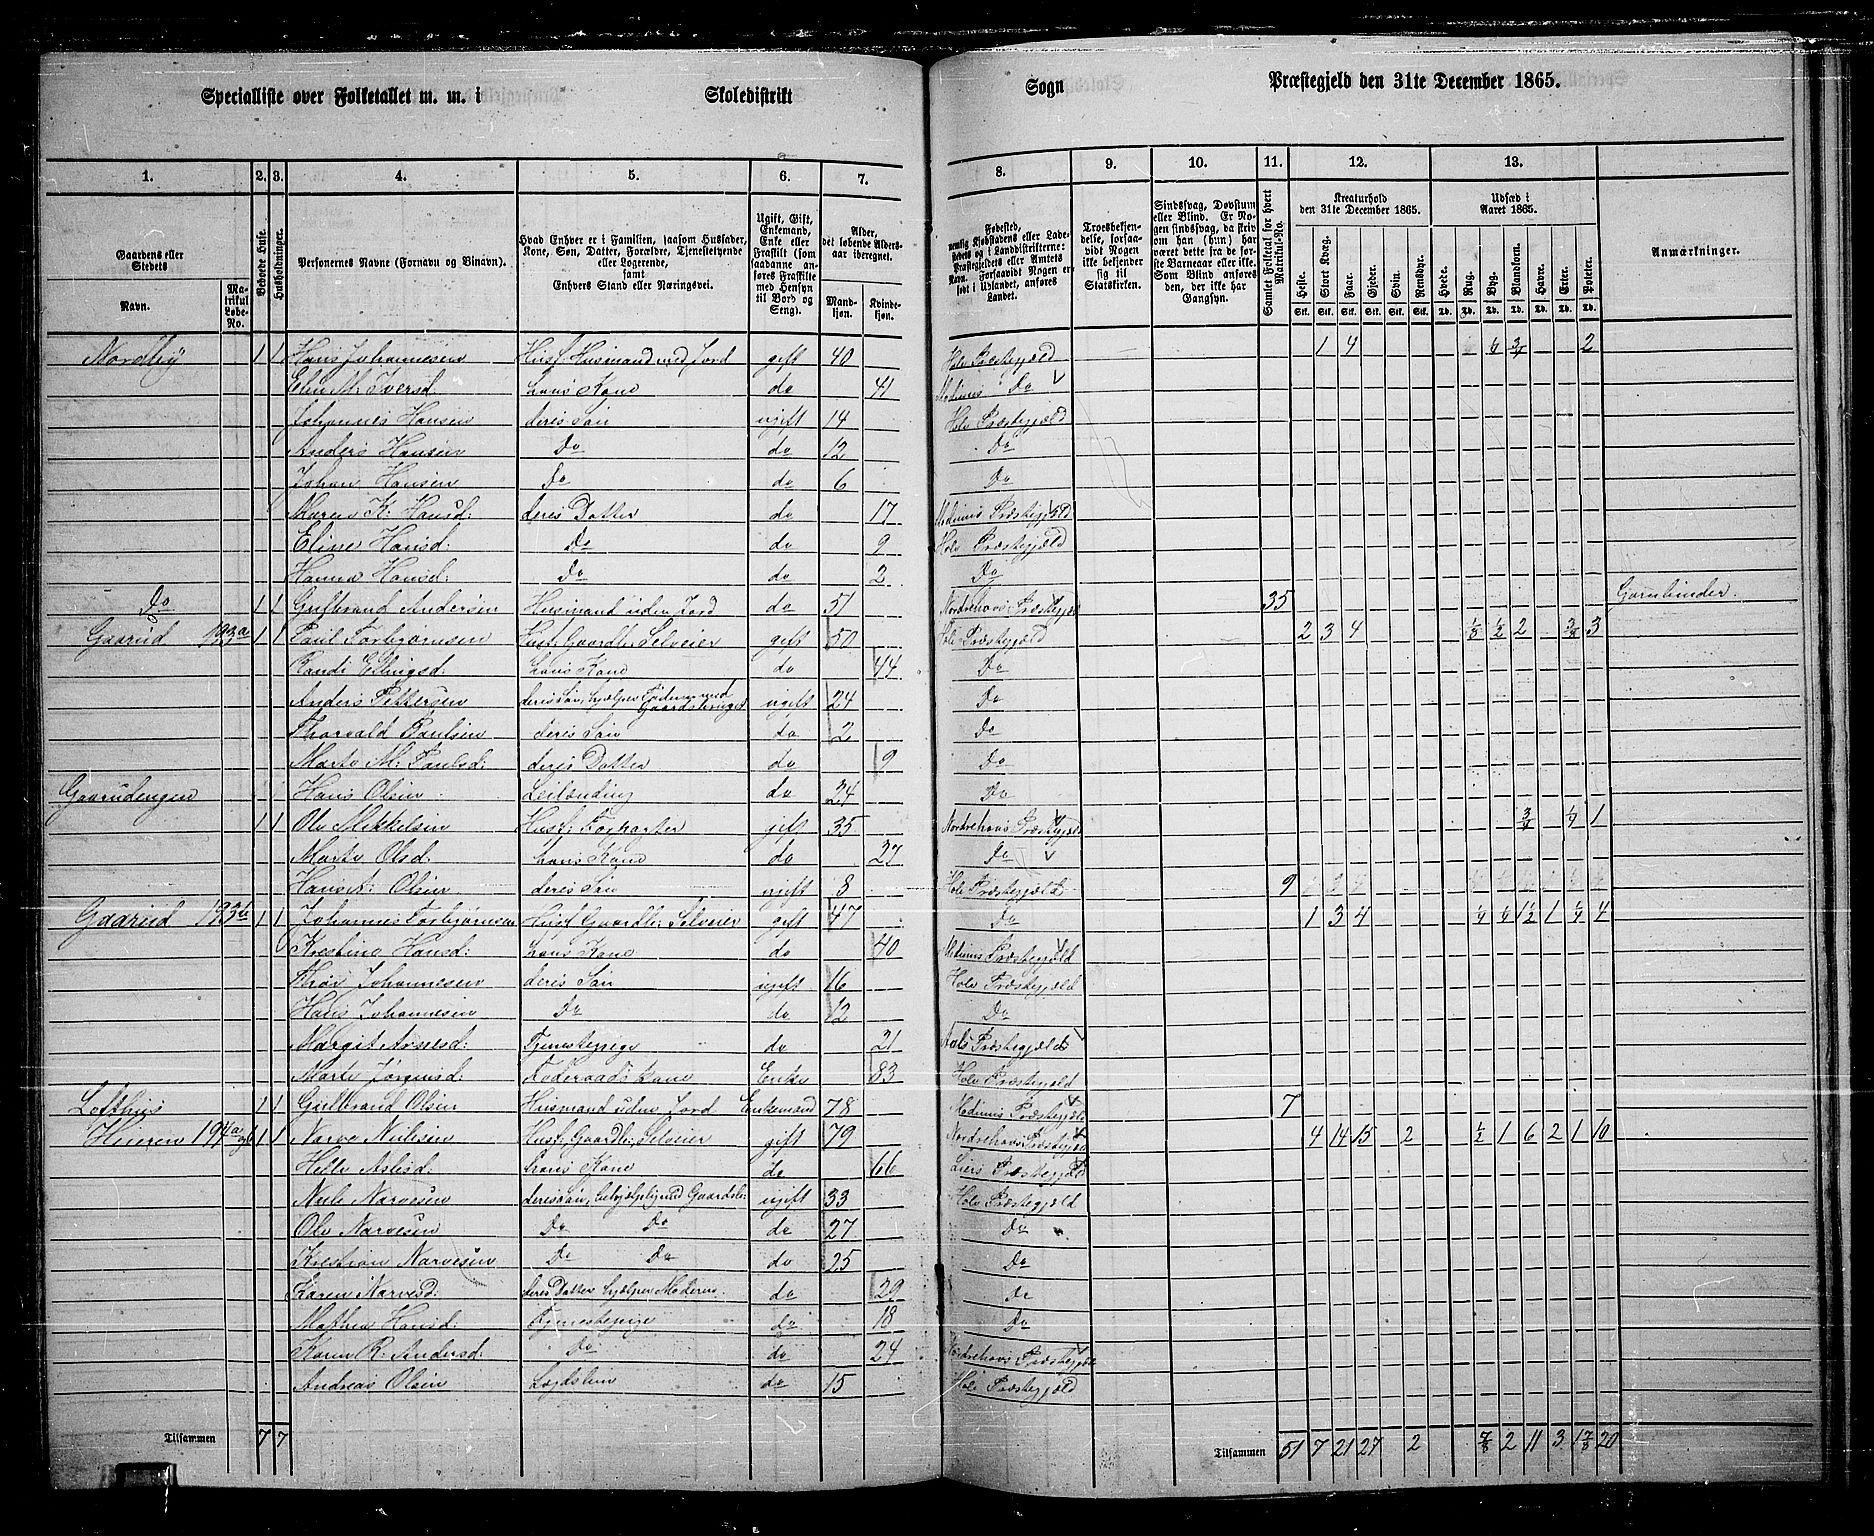 Specialliste over Folketallet m. m. i Skoledistrikt Sogn Præstegjeld den 31te December 1865.
1. 2. 3. 4. 5. 6. 7. 8. 9. 10. 11. 12. 13.
Gaardens eller Stedets Navn. Matrikul Løbe-No. Beboede Huse. Husholdninger. Personernes Navne (Fornavn og Tilnavn). Hvad Enhver er i Familien, saasom Husfader, Kone, Søn, Datter, Forældre, Tjenestetyende eller Logerende, samt Enhvers Stand eller Næringsvei. Ugift, Gift, Enkemand, Enke eller Fraskilt (som saadanne anføres Fraskilte med Hensyn til Bord og Seng). Alder, det løbende Aldersaar iberegnet. Mandkjøn. Kvindekjøn.
Fødested, nemlig Kjøbstadens eller Ladestedets og i Landdistrikterne: Præstegjeldets eller Amtets Navn. Forsaavidt Nogen er født i Udlandet, anføres Landet. Troesbekjendelse, forsaavidt Nogen ikke bekjender sig til Statskirken. Sindssvag, Døvstum eller Blind. Er Nogen sindssvag, da skriv om han (hun) har været dette fra de første Barneaar eller ikke. Som Blind anføres den, der ikke har Gangsyn. Samlet Folketal for hvert Matrikul-No. Kreaturhold den 31te December 1865. Udsæd i Aaret 1865. Anmærkninger.
Heste. Stort Kvæg. Faar. Gjeder. Sviin. Rensdyr. Hvede. Rug. Byg. Blandkorn. Havre. Erter. Poteter.
Stk. Stk. Stk. Stk. Stk. Stk. Td. Td. Td. Td. Td. Td. Td.
Nordby 1 1 Hans Johannesen Husf. Husmand med Jord gift 40 Hole Præstegjæld 1 4 1/4 3/4 2
Elen M. Iversd. hans Kone do 41 Modums Do
Johannes Hansen deres Søn ugift 14 Hole Præstegjæld
Anders Hansen Do do 12 Do
Johan Hansen Do do 6 Do
Maren K. Hansd: deres Datter do 17 Modums Præstegjæld
Eline Hansd: Do do 9 Hole Præstegjæld
Hanna Hansd: Do do 2 Do
Do 1 1 Gulbrand Andersen Husmand uden Jord do 51 Nordrehovs Præstegjæld 35 Garnbinder.
Gaarud 193a 1 1 Paul Torbjørnsen Husf. Gaardbr. Selveier gift 50 Hole Præstegjæld 2 3 4 1/8 1/2 2 3/8 3
Randi Ellingsd. hans Kone do 44 Do
Anders Pettersen deres Søn, hjælper Faderen med Gaardsbruget ugift 24 Do
Thorvald Paulsen deres Søn do 2 Do
Marte M. Paulsd: deres Datter do 9 Do
Gaarudengen Hans Olsen Leilænding do 34 Do
1 1 Ole Mikkelsen Husf: gift 35 Nordrehovs Præstegjæld 3/4 1/4 1
Marte Olsd. hans Kone do 27 Do
Olsen deres Søn ugift 8 Hole Præstegjæld 9
Gaarud 193b 1 1 Johannes Torbjørnsen Husf. Gaardbr. Selveier gift 47 Do 1 3 4 1/4 1/4 1 1/2 1 1/4 4
Kristine Hansd: hans Kone do 40 Modums Præstegjæld
Johannesen deres Søn ugift 16 Hole Præstegjæld
Hans Johannesen Do do 12 Do
Margit Arnesd: Tjenestepige do 21 Aals Præstegjæld
Marte Jørgensd: Føderaadskone Enke 83 Hole Præstegjæld
Lofthus 1 1 Gulbrand Olsen Husmand uden Jord Enkemand 78 Modums Præstegjæld 7
194a og b 1 1 Narve Nilsen Husf. Gaardbr. Selveier gift 79 Nordrehovs Præstegjæld 4 14 15 2 1/2 1 6 2 1 10
Helle Aslesd. hans Kone do 66 Liers Præstegjæld
Nils Narvesen deres Søn, behjælpelig med Gaardsbr: ugift 33 Hole Præstegjæld
Ole Narvesen Do Do do 27 Do
Kristian Narvesen Do Do do 25 Do
Karen Narvesd. deres Datter hjælper Moderen do 29 do
Mathea Hansd. Tjenestepige do 18 Do
Karen R. Andersd: Do do 24 Nordrehovs Præstegjæld
Andreas Olsen do 15 Hole Præstegjæld
Tilsammen 7 7 Tilsammen 51 7 21 27 2 7/8 2 11 3 1 7/8 20